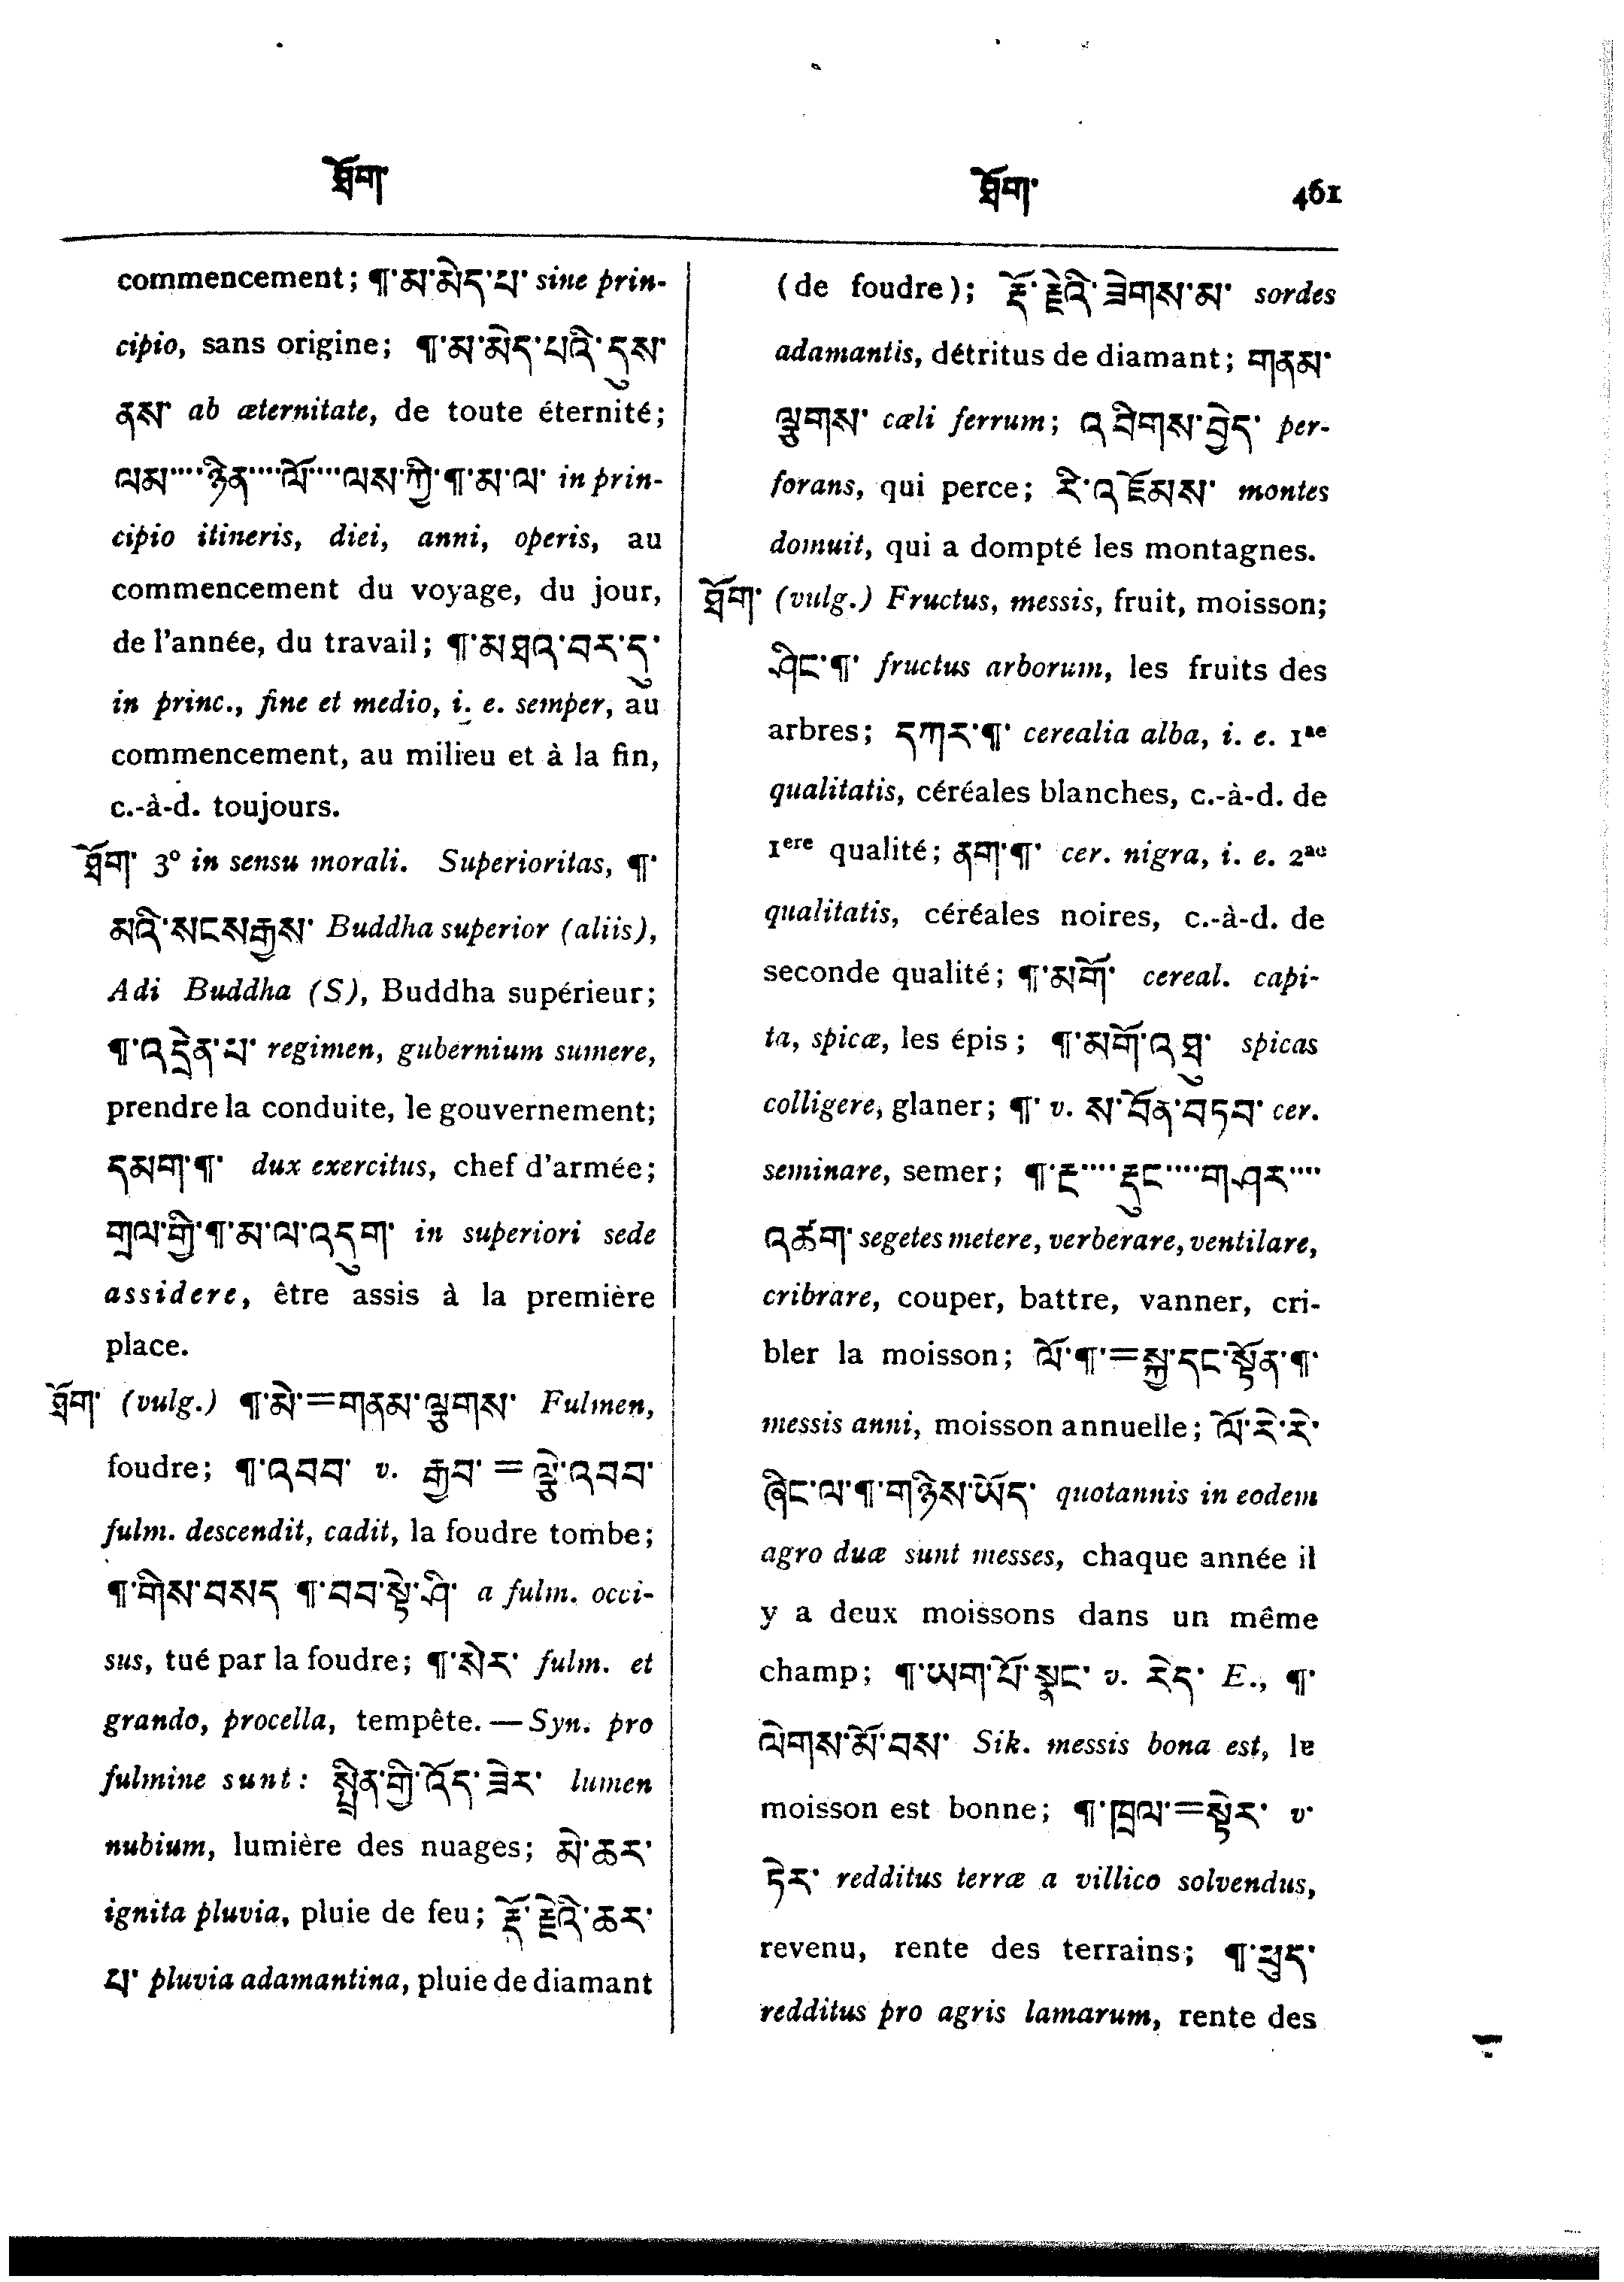 ཐོག་
ཐོག་ 461
commencement; ¶་མ་མེད་པ་ sine prin-
cipio, sans origine; ¶་མ་མེད་པའི་དུས་
ནས་ ab æternitate, de toute éternité;
ལམ····ཉིན····ལོ····ལས་ཀྱི་¶་མ་ལ་ in prin-
cipio itineris, diei, anni, operis, au
commencement du voyage, du jour,
de l'année, du travail; ¶་མཐའ་བར་དུ་
in princ., fine et medio, i. e. semper, au
commencement, au milieu et à la fin,
c.-à-d. toujours.
ཐོག་ 3º in sensu morali. Superioritas, ¶་
མའི་སངས་རྒྱས་ Buddha superior (aliis),
Adi Buddha (S), Buddha supérieur;
¶་འདྲེན་པ་ regimen, gubernium sumere,
prendre la conduite, le gouvernement;
དམག་¶་ dux exercitus, chef d'armée;
གྲལ་གྱི་¶་མ་ལ་འདུག་ in superiori sede
assidere, être assis à la première
place.
ཐོག་ (vulg.) ¶་མེ་=གནམ་ལྕགས་ Fulmen,
foudre; ¶་འབབ་ v. རྒྱབ་ = ལྕེ་འབབ་
fulm. descendit, cadit, la foudre tombe;
¶་གིས་བསད ¶་བབ་སྟེ་ཤི་ a fulm. occi-
sus, tué par la foudre; ¶་སེར་ fulm. et
grando, procella, tempête. — Syn. pro
fulmine sunt: སྤྲིན་གྱི་འོད་ཟེར་ lumen
nubium, lumière des nuages; མེ་ཆར་
ignita pluvia, pluie de feu; རྡོ་རྗེའི་ཆར་
པ་ pluvia adamantina, pluie de diamant
(de foudre); རྡོ་རྗེའི་ཟེགས་མ་ sordes
adamantis, détritus de diamant; གནམ་
ལྕགས་ cæli ferrum; འབིགས་བྱེད་ per-
forans, qui perce; རི་འཇོམས་ montes
domuit, qui a dompté les montagnes.
ཐོག་ (vulg.) Fructus, messis, fruit, moisson;
ཤིང་¶་ fructus arborum, les fruits des
arbres; དཀར་¶་ cerealia alba, i. e. 1ᵃᵉ
qualitatis, céréales blanches, c.-à-d. de
1ᵉʳᵉ qualité; ནག་¶་ cer. nigra, i. e. 2ᵃᵉ
qualitatis, céréales noires, c.-à-d. de
seconde qualité; ¶་མགོ་ cereal. capi-
ta, spicæ, les épis; ¶་མགོ་འཐུ་ spicas
colligere, glaner; ¶་ v. ས་བོན་བཏབ་ cer.
seminare, semer; ¶་རྔ····རྡུང····གཤར····
འཚག་ segetes metere, verberare, ventilare,
cribrare, couper, battre, vanner, cri-
bler la moisson; ལོ་¶་=སྐྱ་དང་སྟོན་¶་
messis anni, moisson annuelle; ལོ་རེ་རེ་
ཞིང་ལ་¶་གཉིས་ཡོད་ quotannis in eodem
agro duæ sunt messes, chaque année il
y a deux moissons dans un même
champ; ¶་ཡག་པོ་སྣང་ v. རེད་ E., ¶་
ལེགས་མོ་བས་ Sik. messis bona est, la
moisson est bonne; ¶་ཁྲལ་=སྟེར་ v་
ཏེར་ redditus terræ a villico solvendus,
revenu, rente des terrains; ¶་ཕུད་
redditus pro agris lamarum, rente des